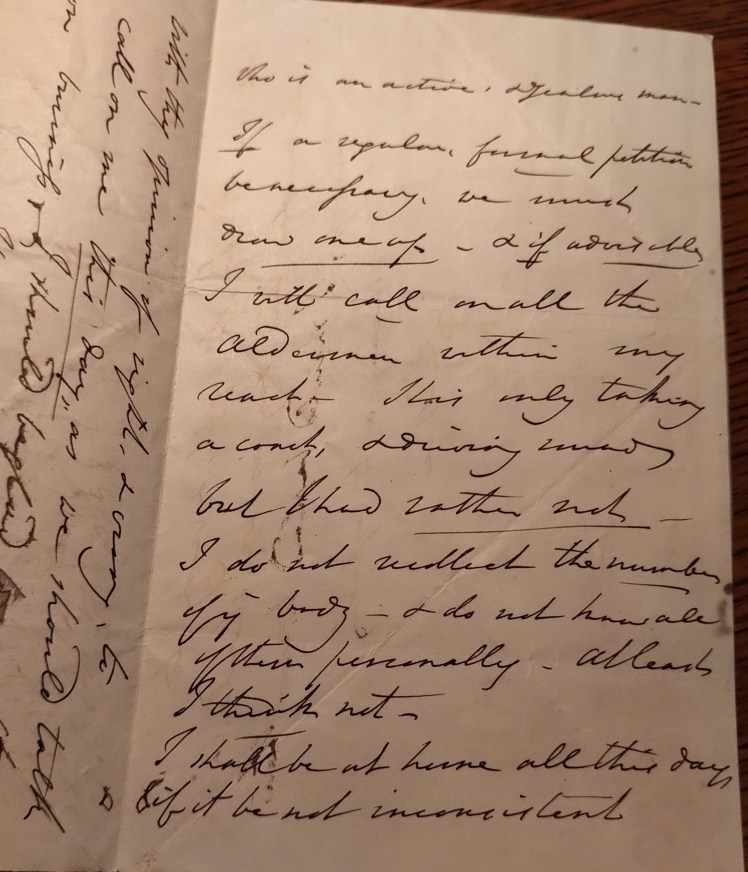 who is an active, & zealous man -
If a regular, formal petition
be necessary, we must
draw one up - & if advisable
I will call on all the
Aldermen within my
reach - It is only taking
a coach, & driving round
but I had rather not -
I do not recollect the number
of ye body - & do not know all
of them personally - At least
I think not -
I shall be at home all this day
& if it be not inconsistent
with the opinion of right, & wrong, to
call on me this day, as we should talk
on business & I should be glad